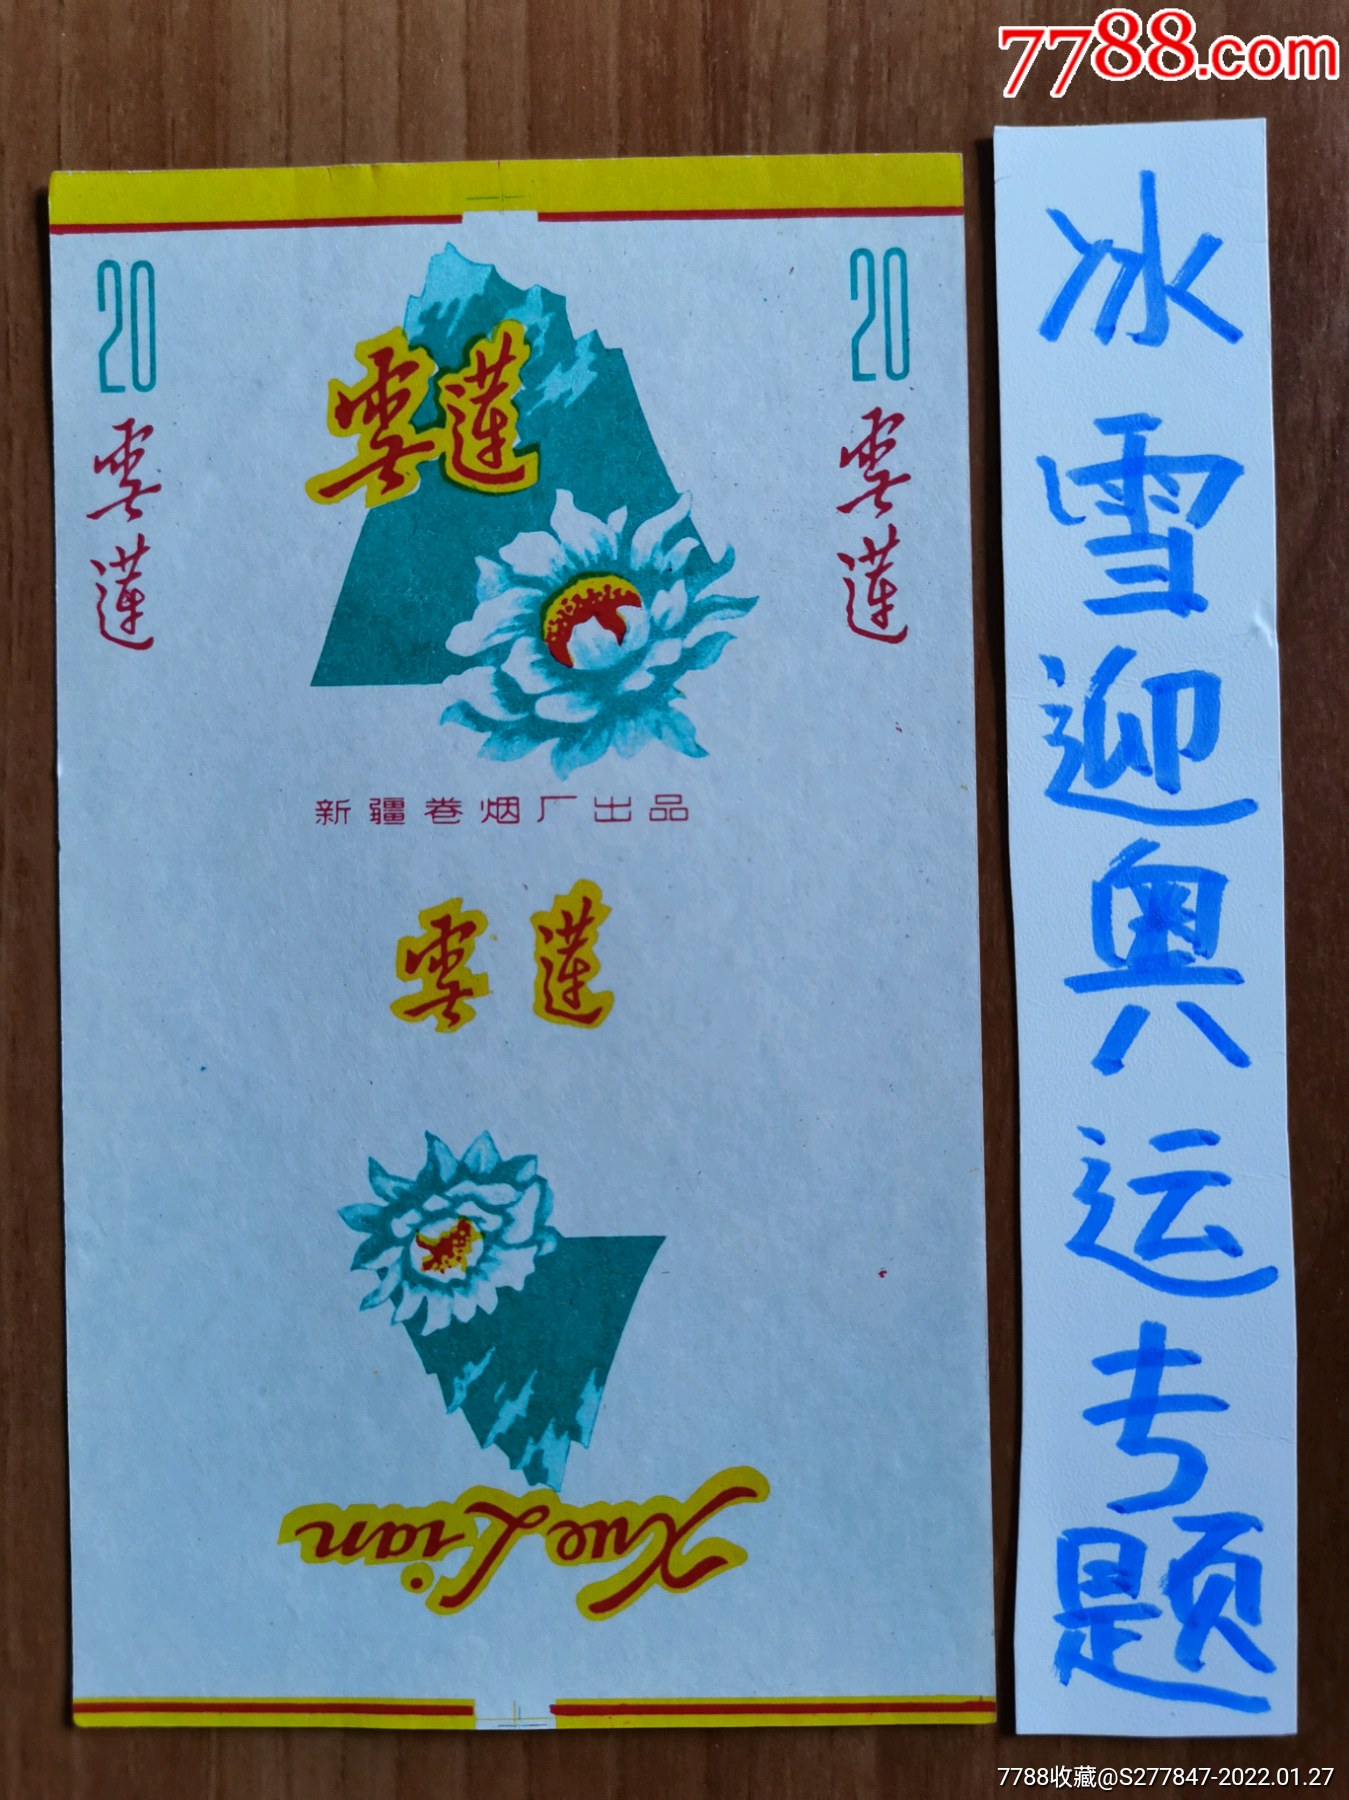 7788.com
20
雪莲
20
雪莲
雪莲
新疆卷烟厂出品
雪莲
Xue Lian
冰雪迎奥运专题
7788收藏@S277847-2022.01.27